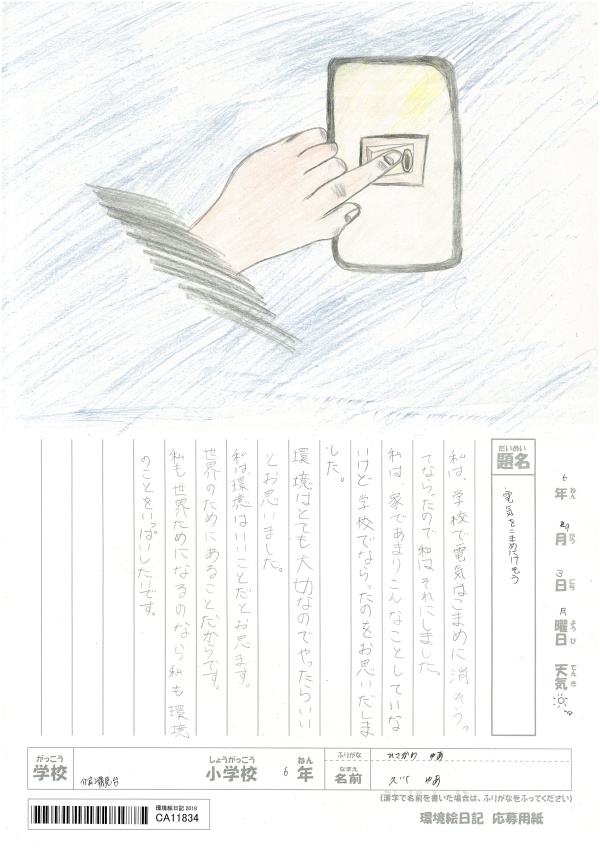 6年 月 3日 月曜日 天気
ねん がつ にち ようび てんき
だいめい
題名
電気をこまめにけそう
私は、学校で電気はこまめに消そうっ
てならったので私はそれにしました。
私は、家であまりこんなことしていな
いけど学校でならったのをお思いだしま
した。
環境はとても大切なのでやったらいい
とお思いました。
私は環境はいいことだとお思ます。
世界のためにあることだからです。
私も世界ためになるのなら私も環境
のことをいっぱいしたいです。
がっこう
学校
しょうがっこう
小学校
6年
ねん
ふりがな
なまえ
名前
ゆあ
ゆあ
(漢字で名前を書いた場合は、ふりがなをふってください)
環境絵日記 2018
CA11834
環境絵日記 応募用紙